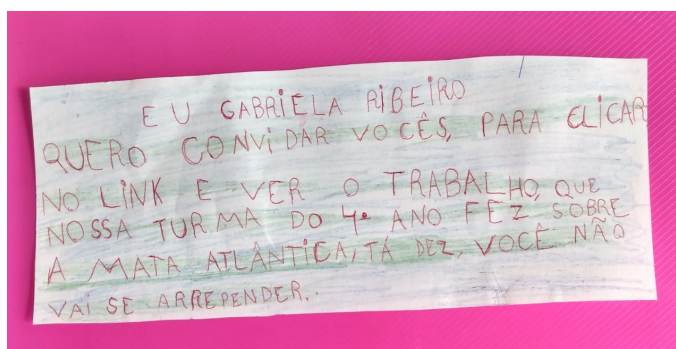 EU GABRIELA RIBEIRO
QUERO CONVIDAR VOCÊS, PARA CLICAR
NO LINK E VER O TRABALHO, QUE
NOSSA TURMA DO 4º ANO FEZ SOBRE
A MATA ATLÂNTICA, TÁ DEZ, VOCÊ NÃO
VAI SE ARREPENDER.